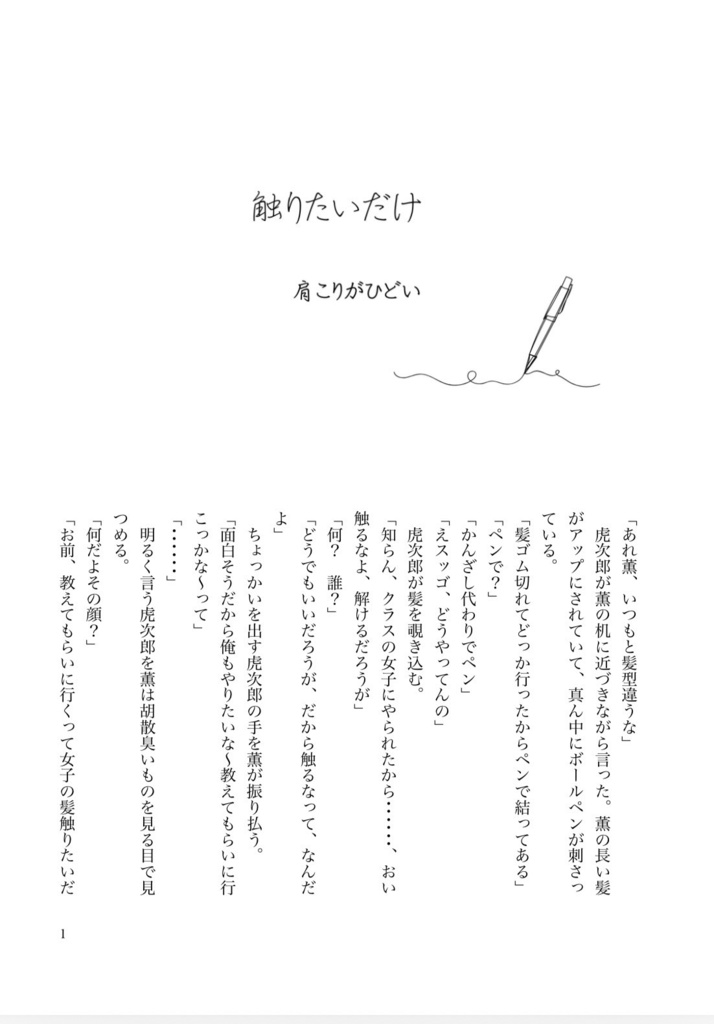 触りたいだけ
肩こりがひどい
「あれ薫、いつもと髪型違うな」
　虎次郎が薫の机に近づきながら言った。薫の長い髪
がアップにされていて、真ん中にボールペンが刺さっ
ている。
「髪ゴム切れてどっか行ったからペンで結ってある」
「ペンで？」
「かんざし代わりでペン」
「えスッゴ、どうやってんの」
　虎次郎が髪を覗き込む。
「知らん、クラスの女子にやられたから・・・・・・、おい
触るなよ、解けるだろうが」
「何？　誰？」
「どうでもいいだろうが、だから触るなって、なんだ
よ」
　ちょっかいを出す虎次郎の手を薫が振り払う。
「面白そうだから俺もやりたいな〜教えてもらいに行
こっかな〜って」
「・・・・・」
　明るく言う虎次郎を薫は胡散臭いものを見る目で見
つめる。
「何だよその顔？」
「お前、教えてもらいに行くって女子の髪触りたいだ
1